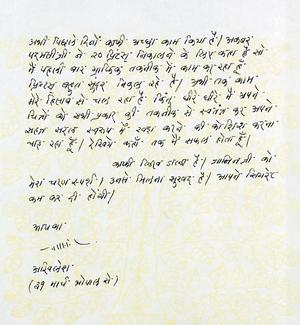 अभी पिछले दिनों काफी अच्छा काम किया है। अकबर
पदमसीजी ने २० प्रिंट्स निकालने के लिए कहा है सो
मैं पहली बार ग्राफिक तकनीक में काम कर रहा हूँ
प्रिन्ट्स बहुत सुंदर निकल रहे हैं। अभी तक काम
मेरे हिसाब से चल रहा है किंतु धीरे धीरे मैं अपने
चित्रों को सभी प्रकार की तकनीक से स्वतंत्र कर अपने
सहज सरल स्वरूप में खड़ा करने की कोशिश करना
चाह रहा हूँ। देखिये कहाँ तक मैं सफल होता हूँ।
काफी लिख डाला है। को
मेरा चरण स्पर्श। उनसे मिलना सुखद है। आपने सिगरेट
कम कर दी होंगी।
आपका
अखिलेश
(२१ मार्च भोपाल से)